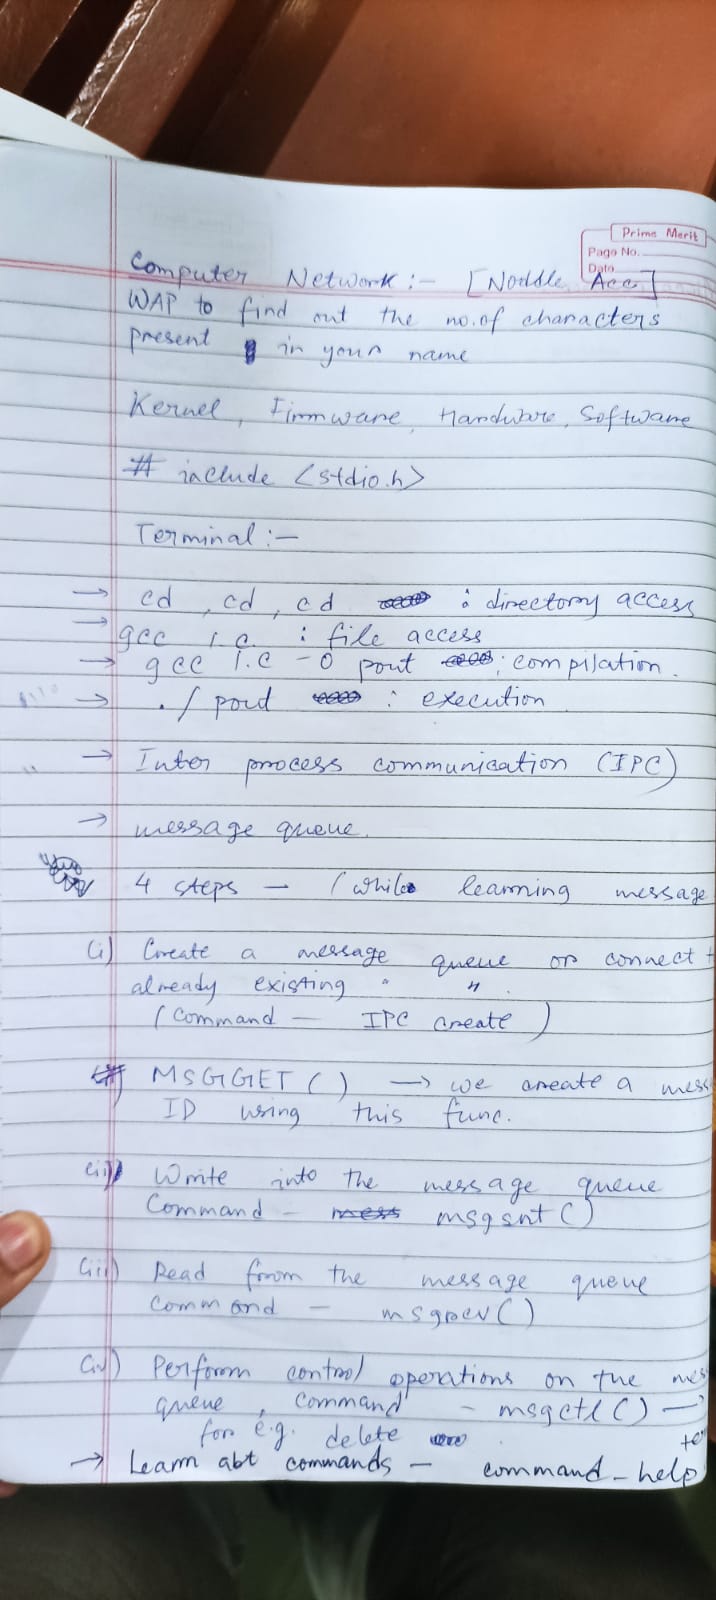 Prime Merit
Page No.
Date
Computer Network :- [Noddle Acc]
WAP to find out the no. of characters
present in your name
Kernel, Firmware, Hardware, Software
# include <stdio.h>
Terminal :-
→ cd , cd , cd : directory access
→ gcc 1.c. : file access
→ gcc 1.c -o pout : compilation.
→ ./ pout : execution
→ Inter process communication (IPC)
→ message queue.
4 steps - (while learning message
(i) Create a message queue or connect t
already existing " " .
(Command - IPC create)
MSGGET () → we create a mess
ID using this func.
(ii) Write into the message queue
Command - msgsnt ()
(iii) Read from the message queue
Command - msgrcv ()
(iv) Perform control operations on the mes
queue , command - msgctl () →
for e.g. delete
→ Learn abt commands - command - help